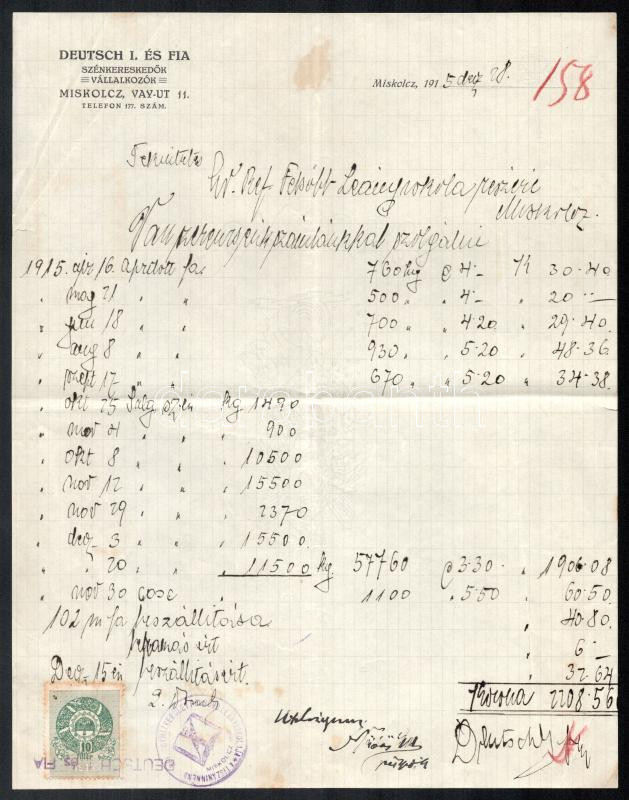 DEUTSCH I. ÉS FIA
SZÉNKERESKEDŐK
VÁLLALKOZÓK
MISKOLCZ, VAY-UT 11.
TELEFON 177. SZÁM.
Miskolcz, 1915 decz 28.
158
Tekintetes
Ev. Ref Felsőbb Leányiskola részére
Miskolcz.
Van szerencsénk számlánkkal szolgálni
1915. apr 16. aprított fa 760 kg @ 4.– K 30.40
" maj 21 " " 500 " " 4.– " 20.–
" jun 18 " " 700 " " 4.20 " 29.40
" aug 8 " " 930 " " 5.20 " 48.36
" szept 17 " " 670 " " 5.20 " 34.38
" okt 25 Salg szén kg 1490
" nov 4 " " " 900
" okt 8 " " " 10500
" nov 12 " " " 15500
" nov 29 " " " 2370
" dec 3 " " " 15500
" " 20 " " " 11500 kg 57760 @ 3.30 " 1906.08
" nov 30 1100 " 5.50 " 60.50
102 m fa beszállítása " 40.80
" 6.–
Dec 15 én beszállításért. " 32.64
Korona 2208.56
10
DEUTSCH I. ÉS FIA
Deutsch